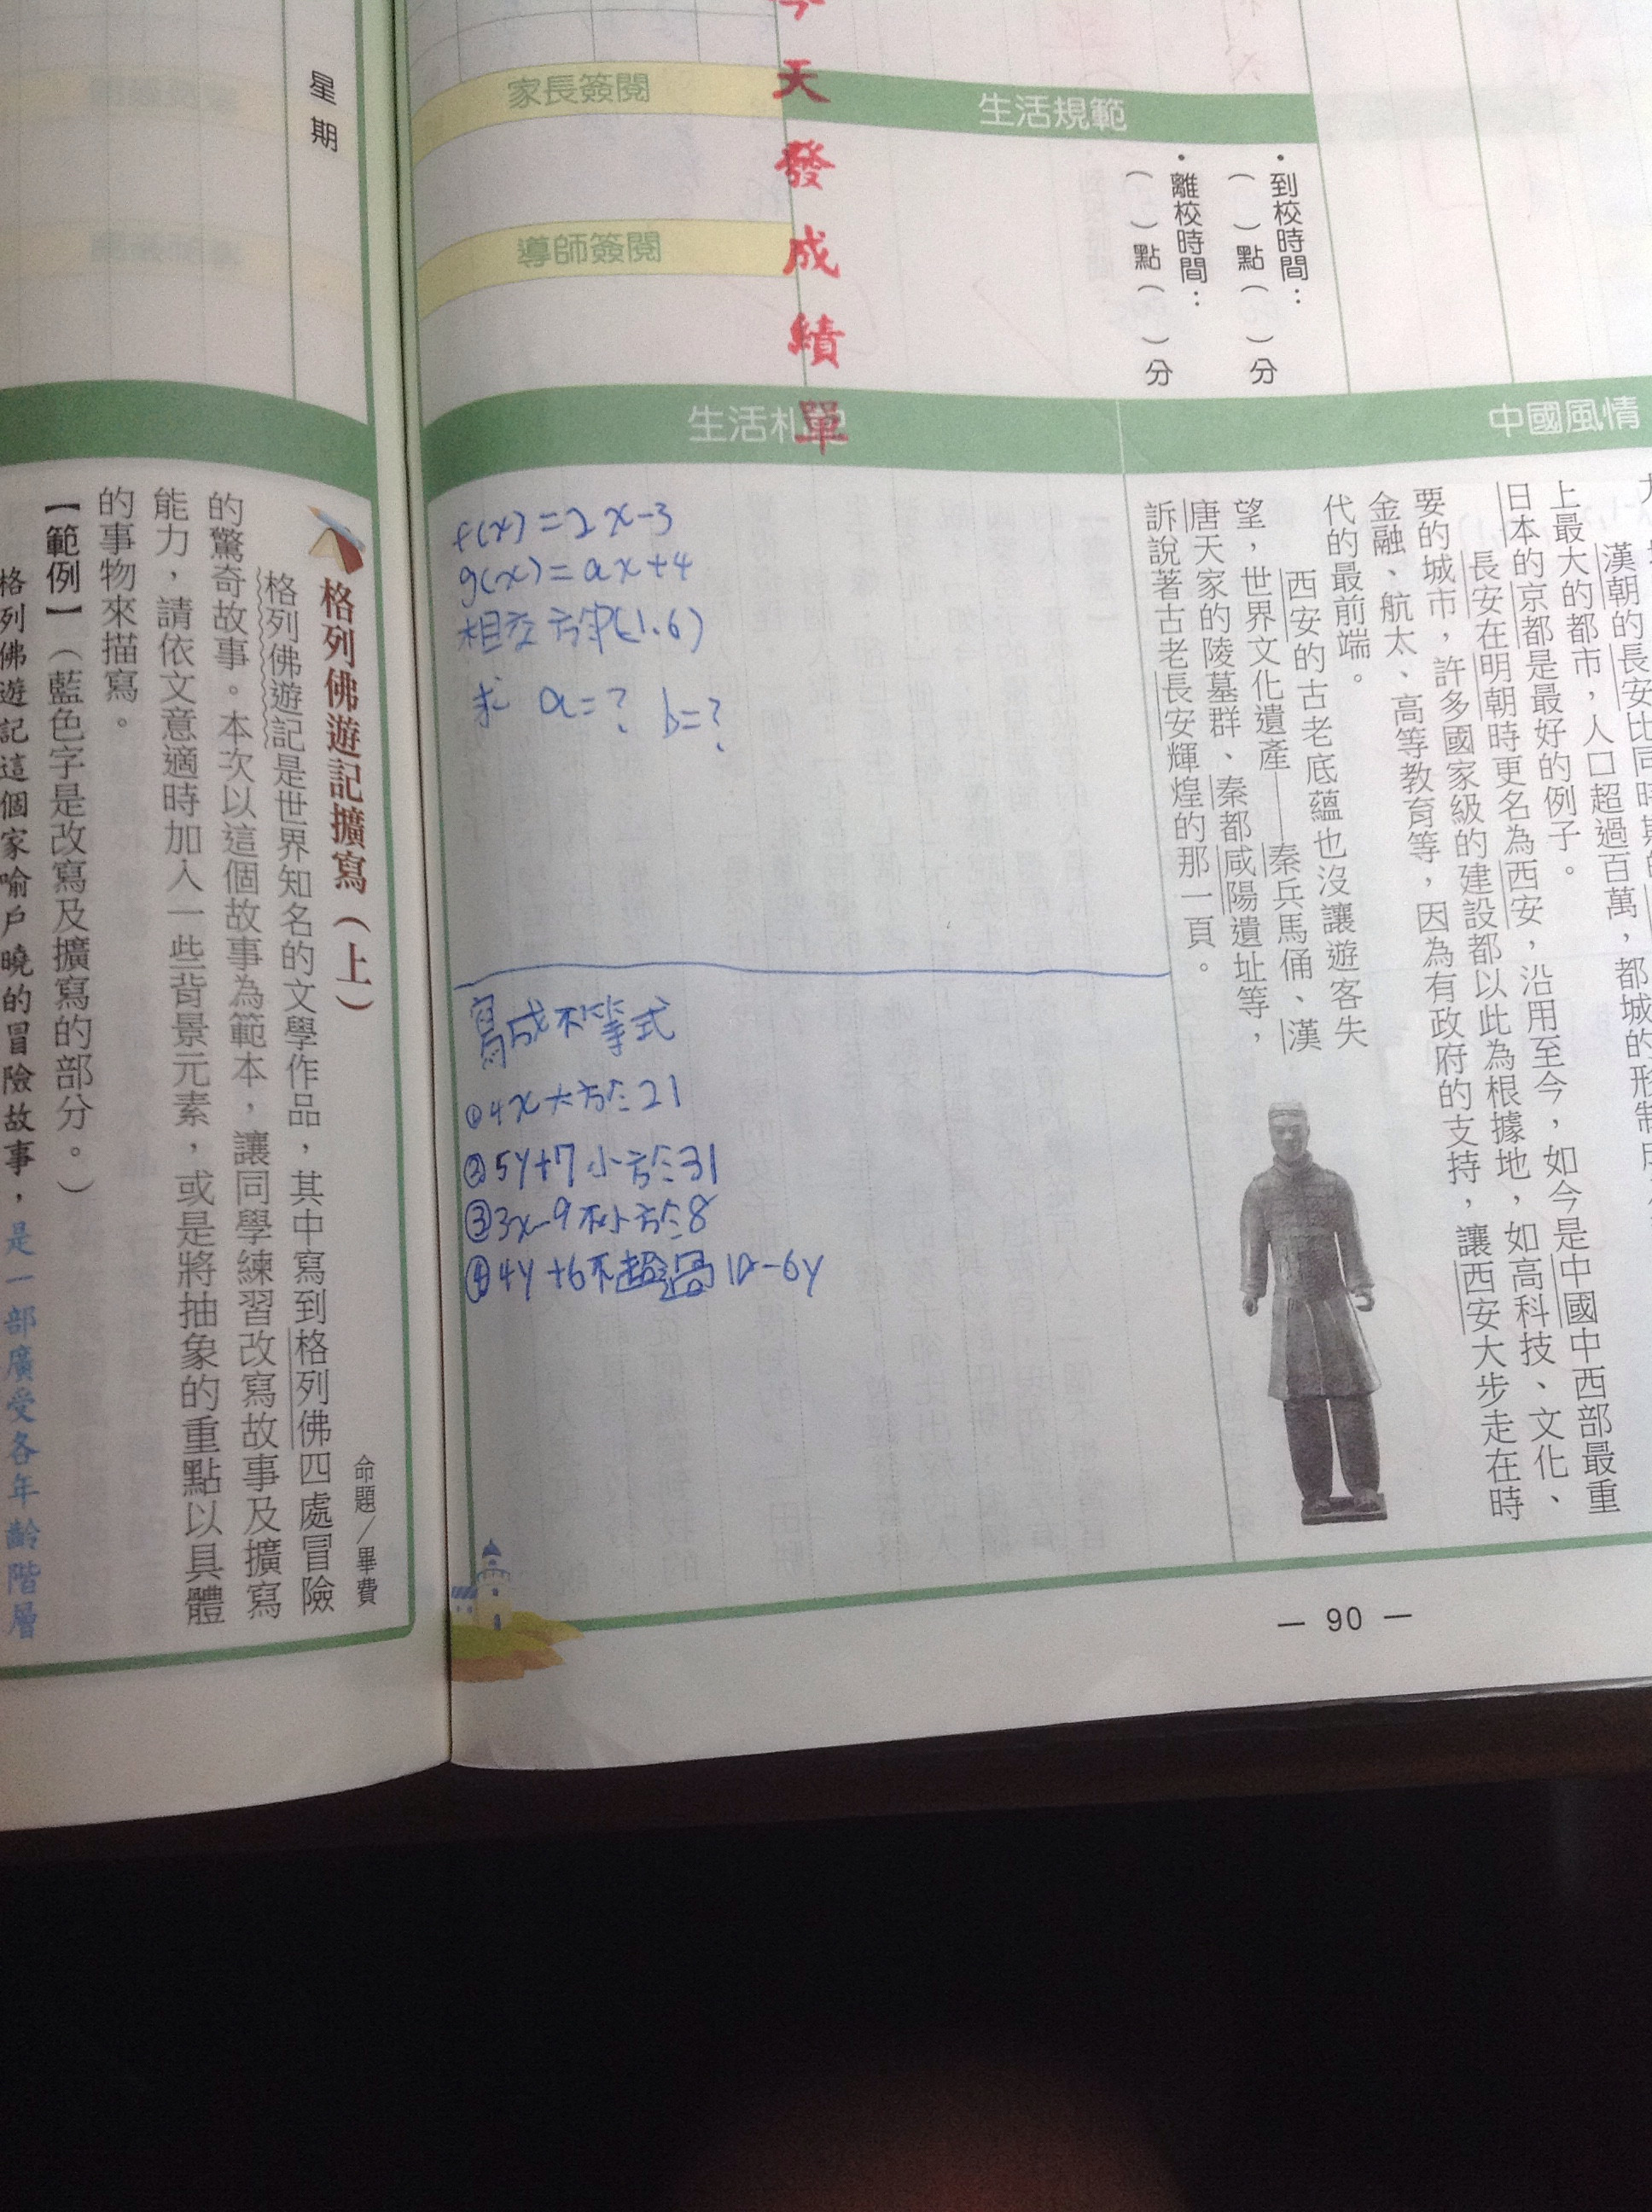 今天發成績單
家長簽閱
導師簽閱
生活規範
・到校時間：
（ ）點（ ）分
・離校時間：
（ ）點（ ）分
中國風情
漢朝的長安比同時期的
上最大的都市，人口超過百萬，都城的形制
日本的京都是最好的例子。
長安在明朝時更名為西安，沿用至今，如今是中國中西部最重
要的城市，許多國家級的建設都以此為根據地，如高科技、文化、
金融、航太、高等教育等，因為有政府的支持，讓西安大步走在時
代的最前端。
西安的古老底蘊也沒讓遊客失
望，世界文化遺產——秦兵馬俑、漢
唐天家的陵墓群、秦都咸陽遺址等，
訴說著古老長安輝煌的那一頁。
生活札記
f(x)=2x-3
g(x)=ax+4
相交於(1.6)
求 a=? b=?
寫成不等式
①4x大於21
②5y+7小於31
③3x-9不小於8
④4y+6不超過12-6y
— 90 —
星期
格列佛遊記擴寫（上）
命題／畢費
格列佛遊記是世界知名的文學作品，其中寫到格列佛四處冒險
的驚奇故事。本次以這個故事為範本，讓同學練習改寫故事及擴寫
能力，請依文意適時加入一些背景元素，或是將抽象的重點以具體
的事物來描寫。
【範例】（藍色字是改寫及擴寫的部分。）
格列佛遊記這個家喻戶曉的冒險故事，是一部廣受各年齡階層